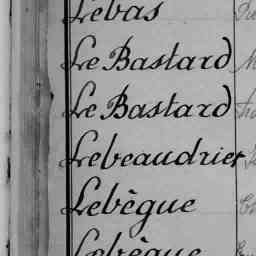 Lebas
Le Bastard
Le Bastard
Lebeaudrier
Lebègue
Lebègue